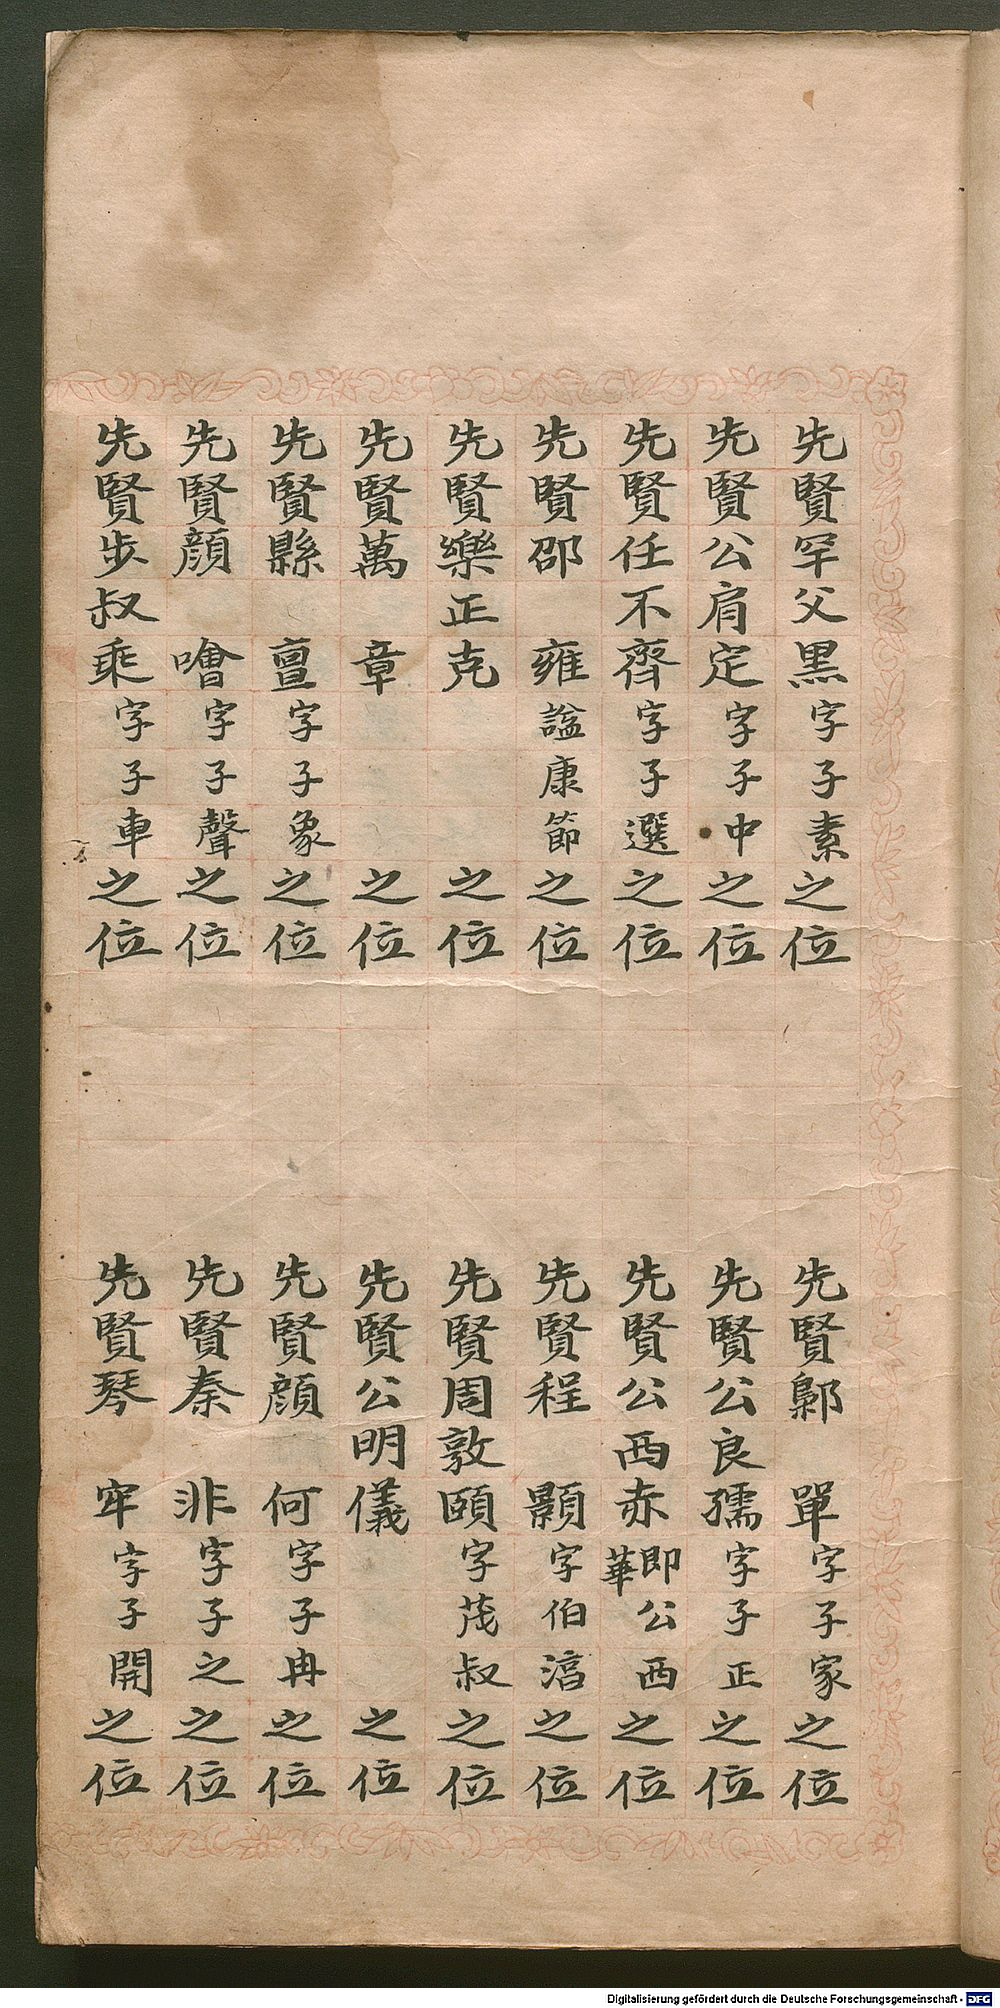 先賢罕父黑字子素之位
先賢公肩定字子中之位
先賢任不齊字子選之位
先賢邵雍諡康節之位
先賢樂正克之位
先賢萬章之位
先賢縣亶字子象之位
先賢顔噲字子聲之位
先賢步叔乘字子車之位
先賢鄡單字子家之位
先賢公良孺字子正之位
先賢公西赤即公西華之位
先賢程顥字伯湻之位
先賢周敦頤字茂叔之位
先賢公明儀之位
先賢顔何字子冉之位
先賢秦非字子之之位
先賢琴牢字子開之位
Digitalisierung gefördert durch die Deutsche Forschungsgemeinschaft - DFG